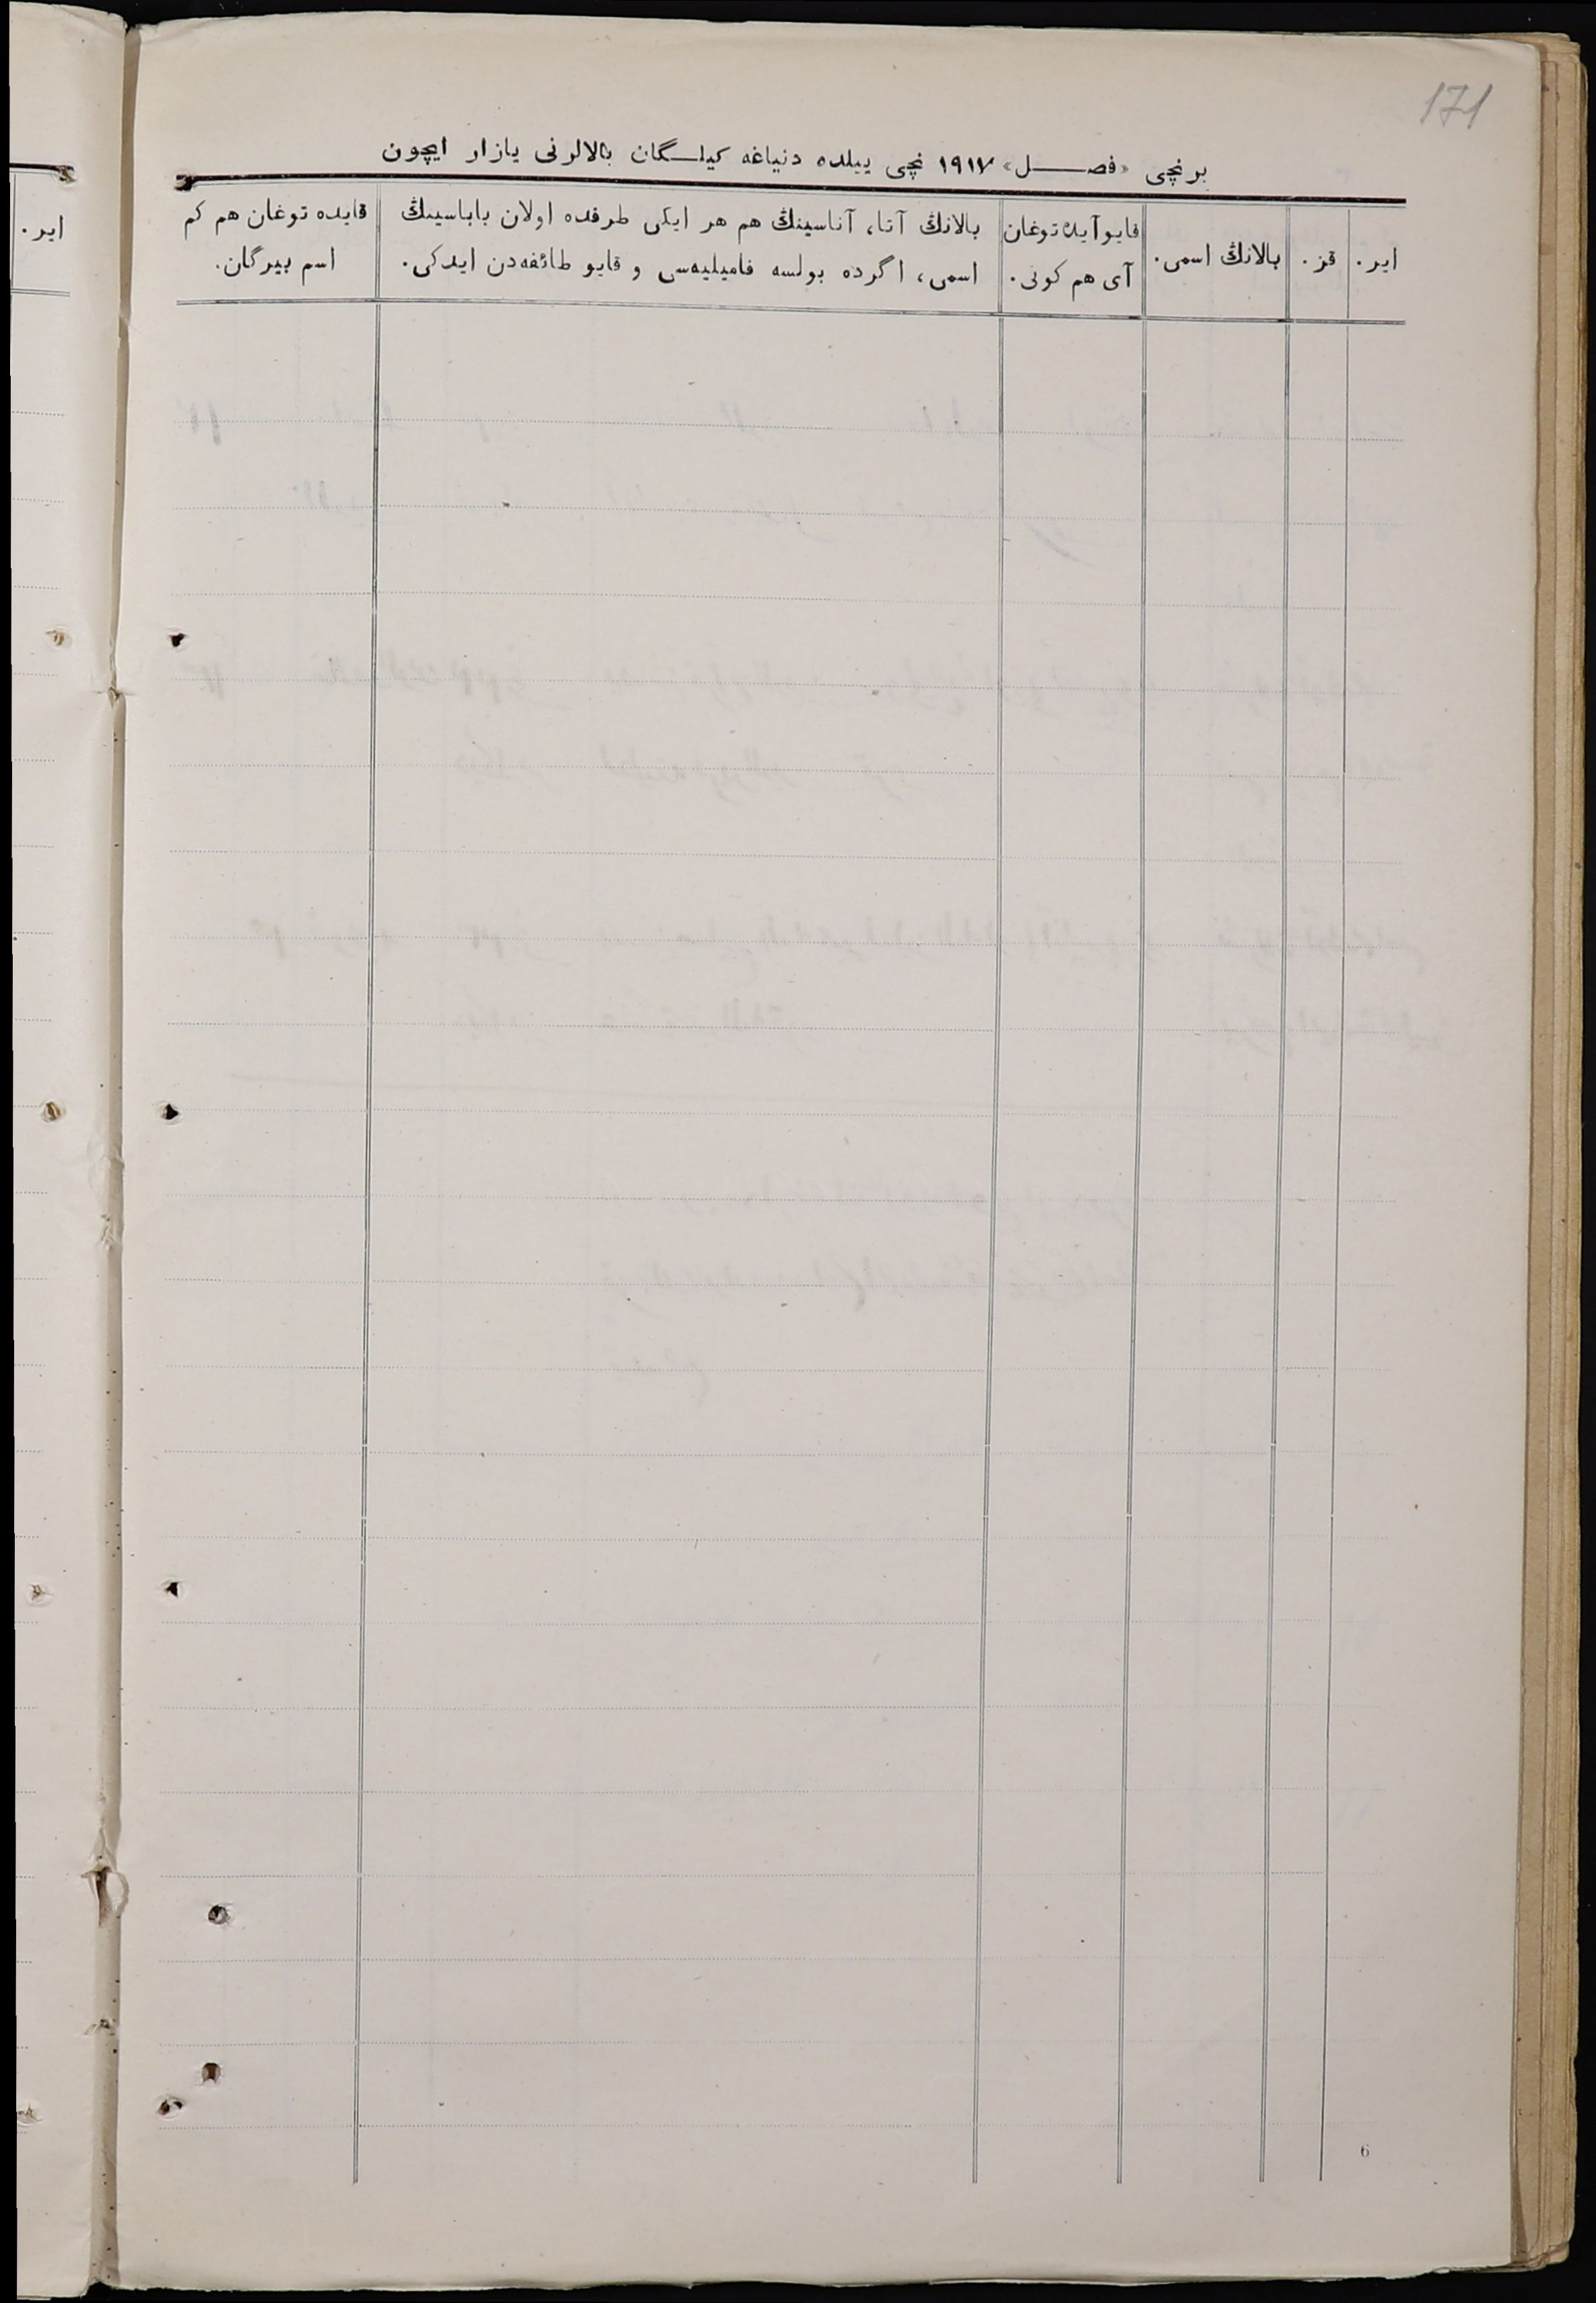 171
برنچی «فصـــل» ١٩١٧ نچی ییلده دنیاغه کیلـگان بالالرنی یازار ایچون
ایر.
قز.
بالانڭ اسمی.
قایو آیده توغان
آی هم کونی.
بالانڭ آتا، آناسینڭ هم هر ایکی طرفده اولان باباسینڭ
اسمی، اگرده بولسه فامیلیه‌سی و قایو طائفه‌دن ایدکی.
قایده توغان هم کم
اسم بیرگان.
ایر.
6